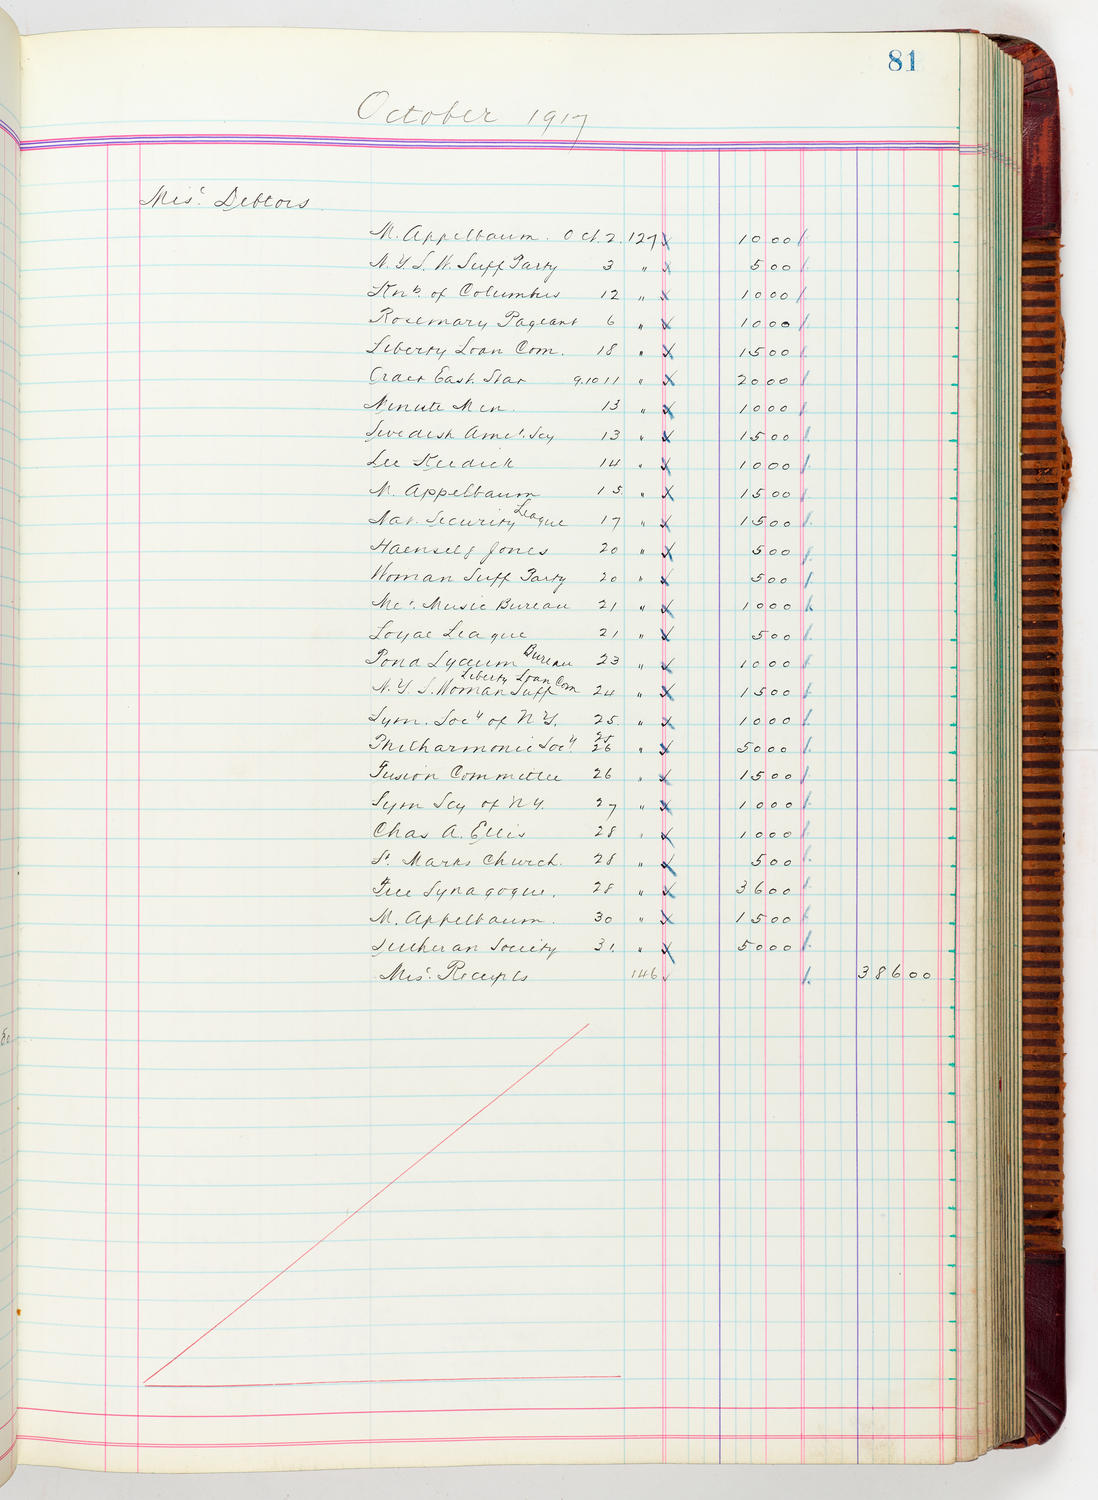 81
October 1917
Misc. Debtors
M. Appelbaum. Oct. 2. 127 1000
N.Y.S.W. Suff Party 3 " 500
Knts. of Columbus 12 " 1000
Rosemary Pageant 6 " 1000
Liberty Loan Com. 18 " 1500
Order East. Star 9.10 11 " 2000
Minute Men. 13 " 1000
Swedish Amer. Scy 13 " 1500
Lee Keedick 14 " 1000
M. Appelbaum 15. " 1500
Nat. Security League 17 " 1500
Haensel & Jones 20 " 500
Woman Suff Party 20 " 500
Music Bureau 21 " 1000
Loyal League 21 " 500
Pond Lyceum Bureau 23 " 1000
Liberty Loan Com
N.Y.S. Woman Suff 24 " 1500
Sym. Socy of N.Y. 25. " 1000
Philharmonic Socy 25 26 " 5000
Fusion Committee 26 " 1500
Sym Scy of N.Y. 27 " 1000
Chas A. Ellis 28 " 1000
St. Marks Church. 28 " 500
Free Synagogue. 28 " 3600
M. Appelbaum. 30 " 1500
Lutheran Society 31. " 5000
Misc. Receipts 146 38600